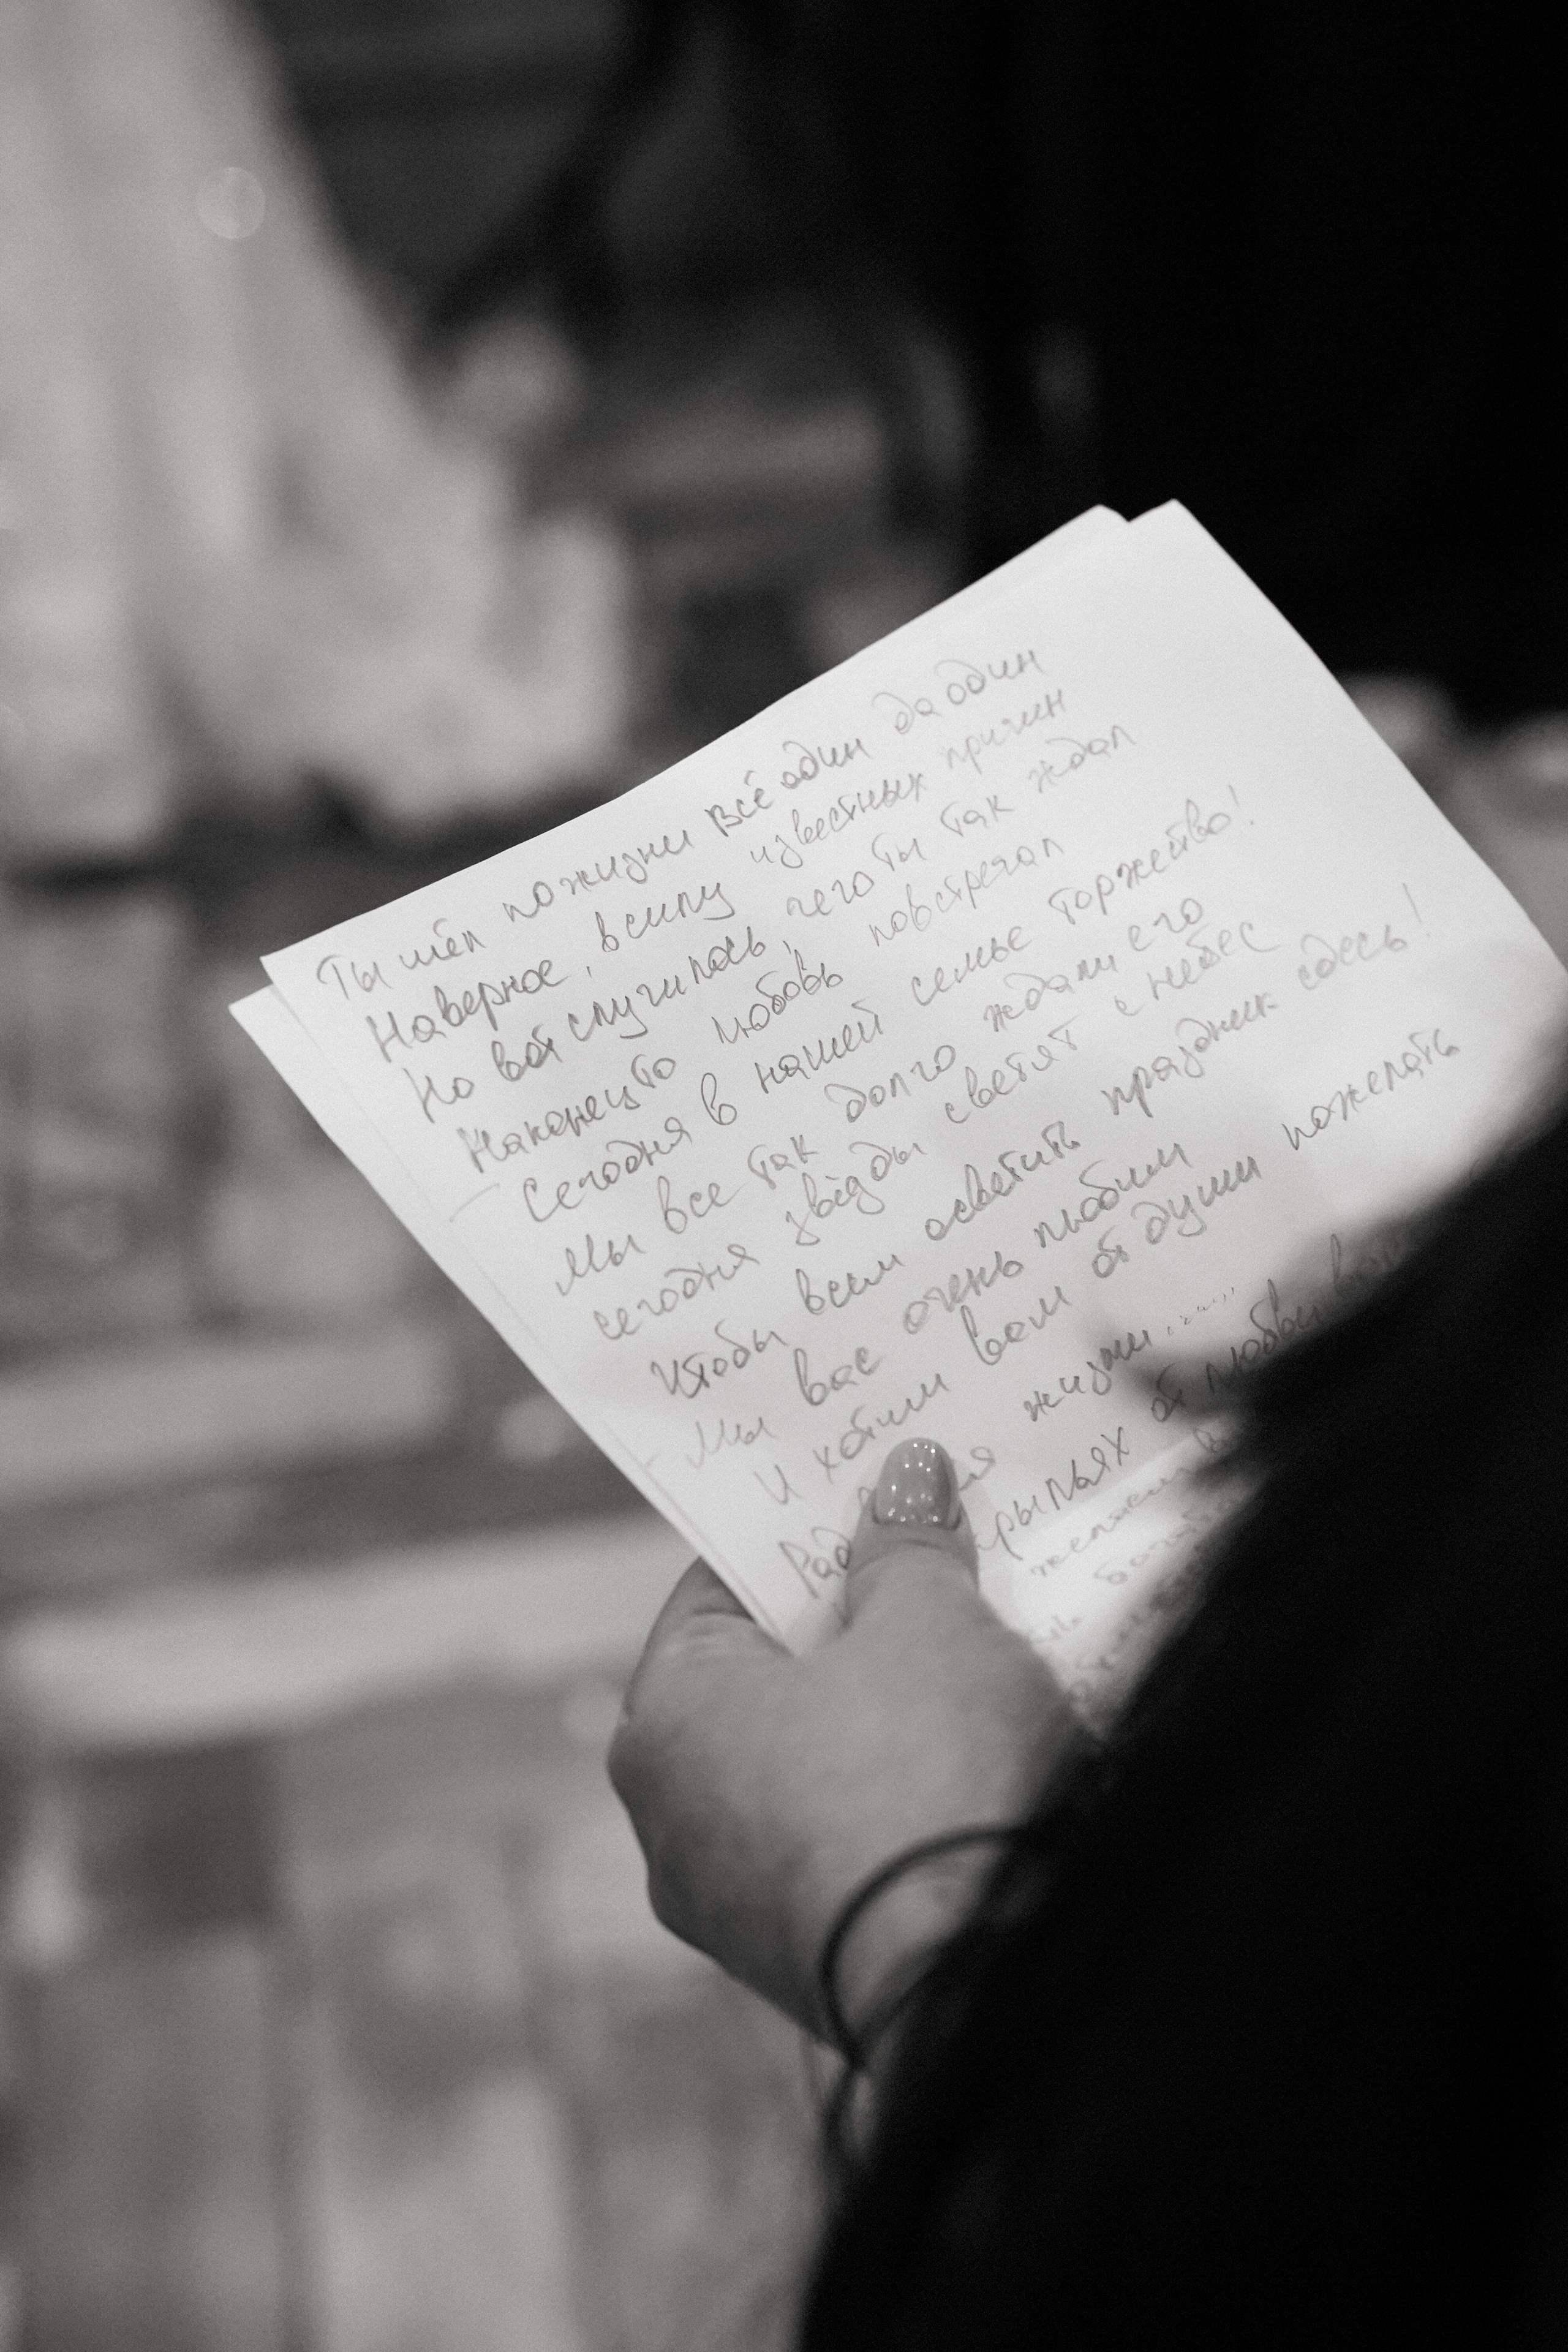 Ты шёл по жизни всё один да один
Наверное, в силу известных причин
Но вот случилось, чего ты так ждал
Наконец то любовь повстречал
Сегодня в нашей семье торжество!
Мы все так долго ждали его
сегодня звёзды светят с небес
Чтобы всем осветить праздник здесь!
Мы вас очень любим
И хотим вам от души пожелать
жизни......
от любви
желаем